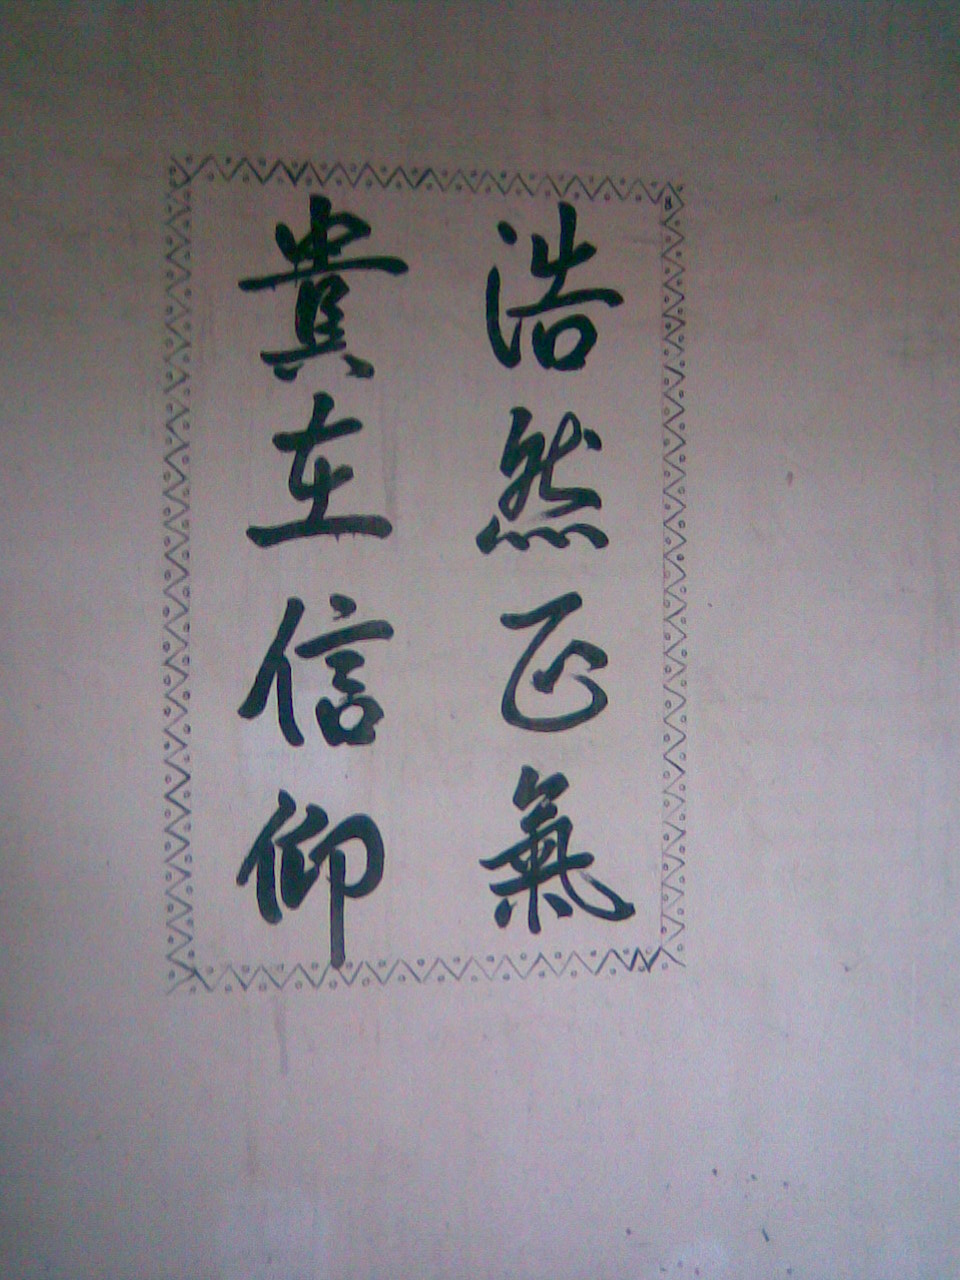 浩然正氣
貴在信仰